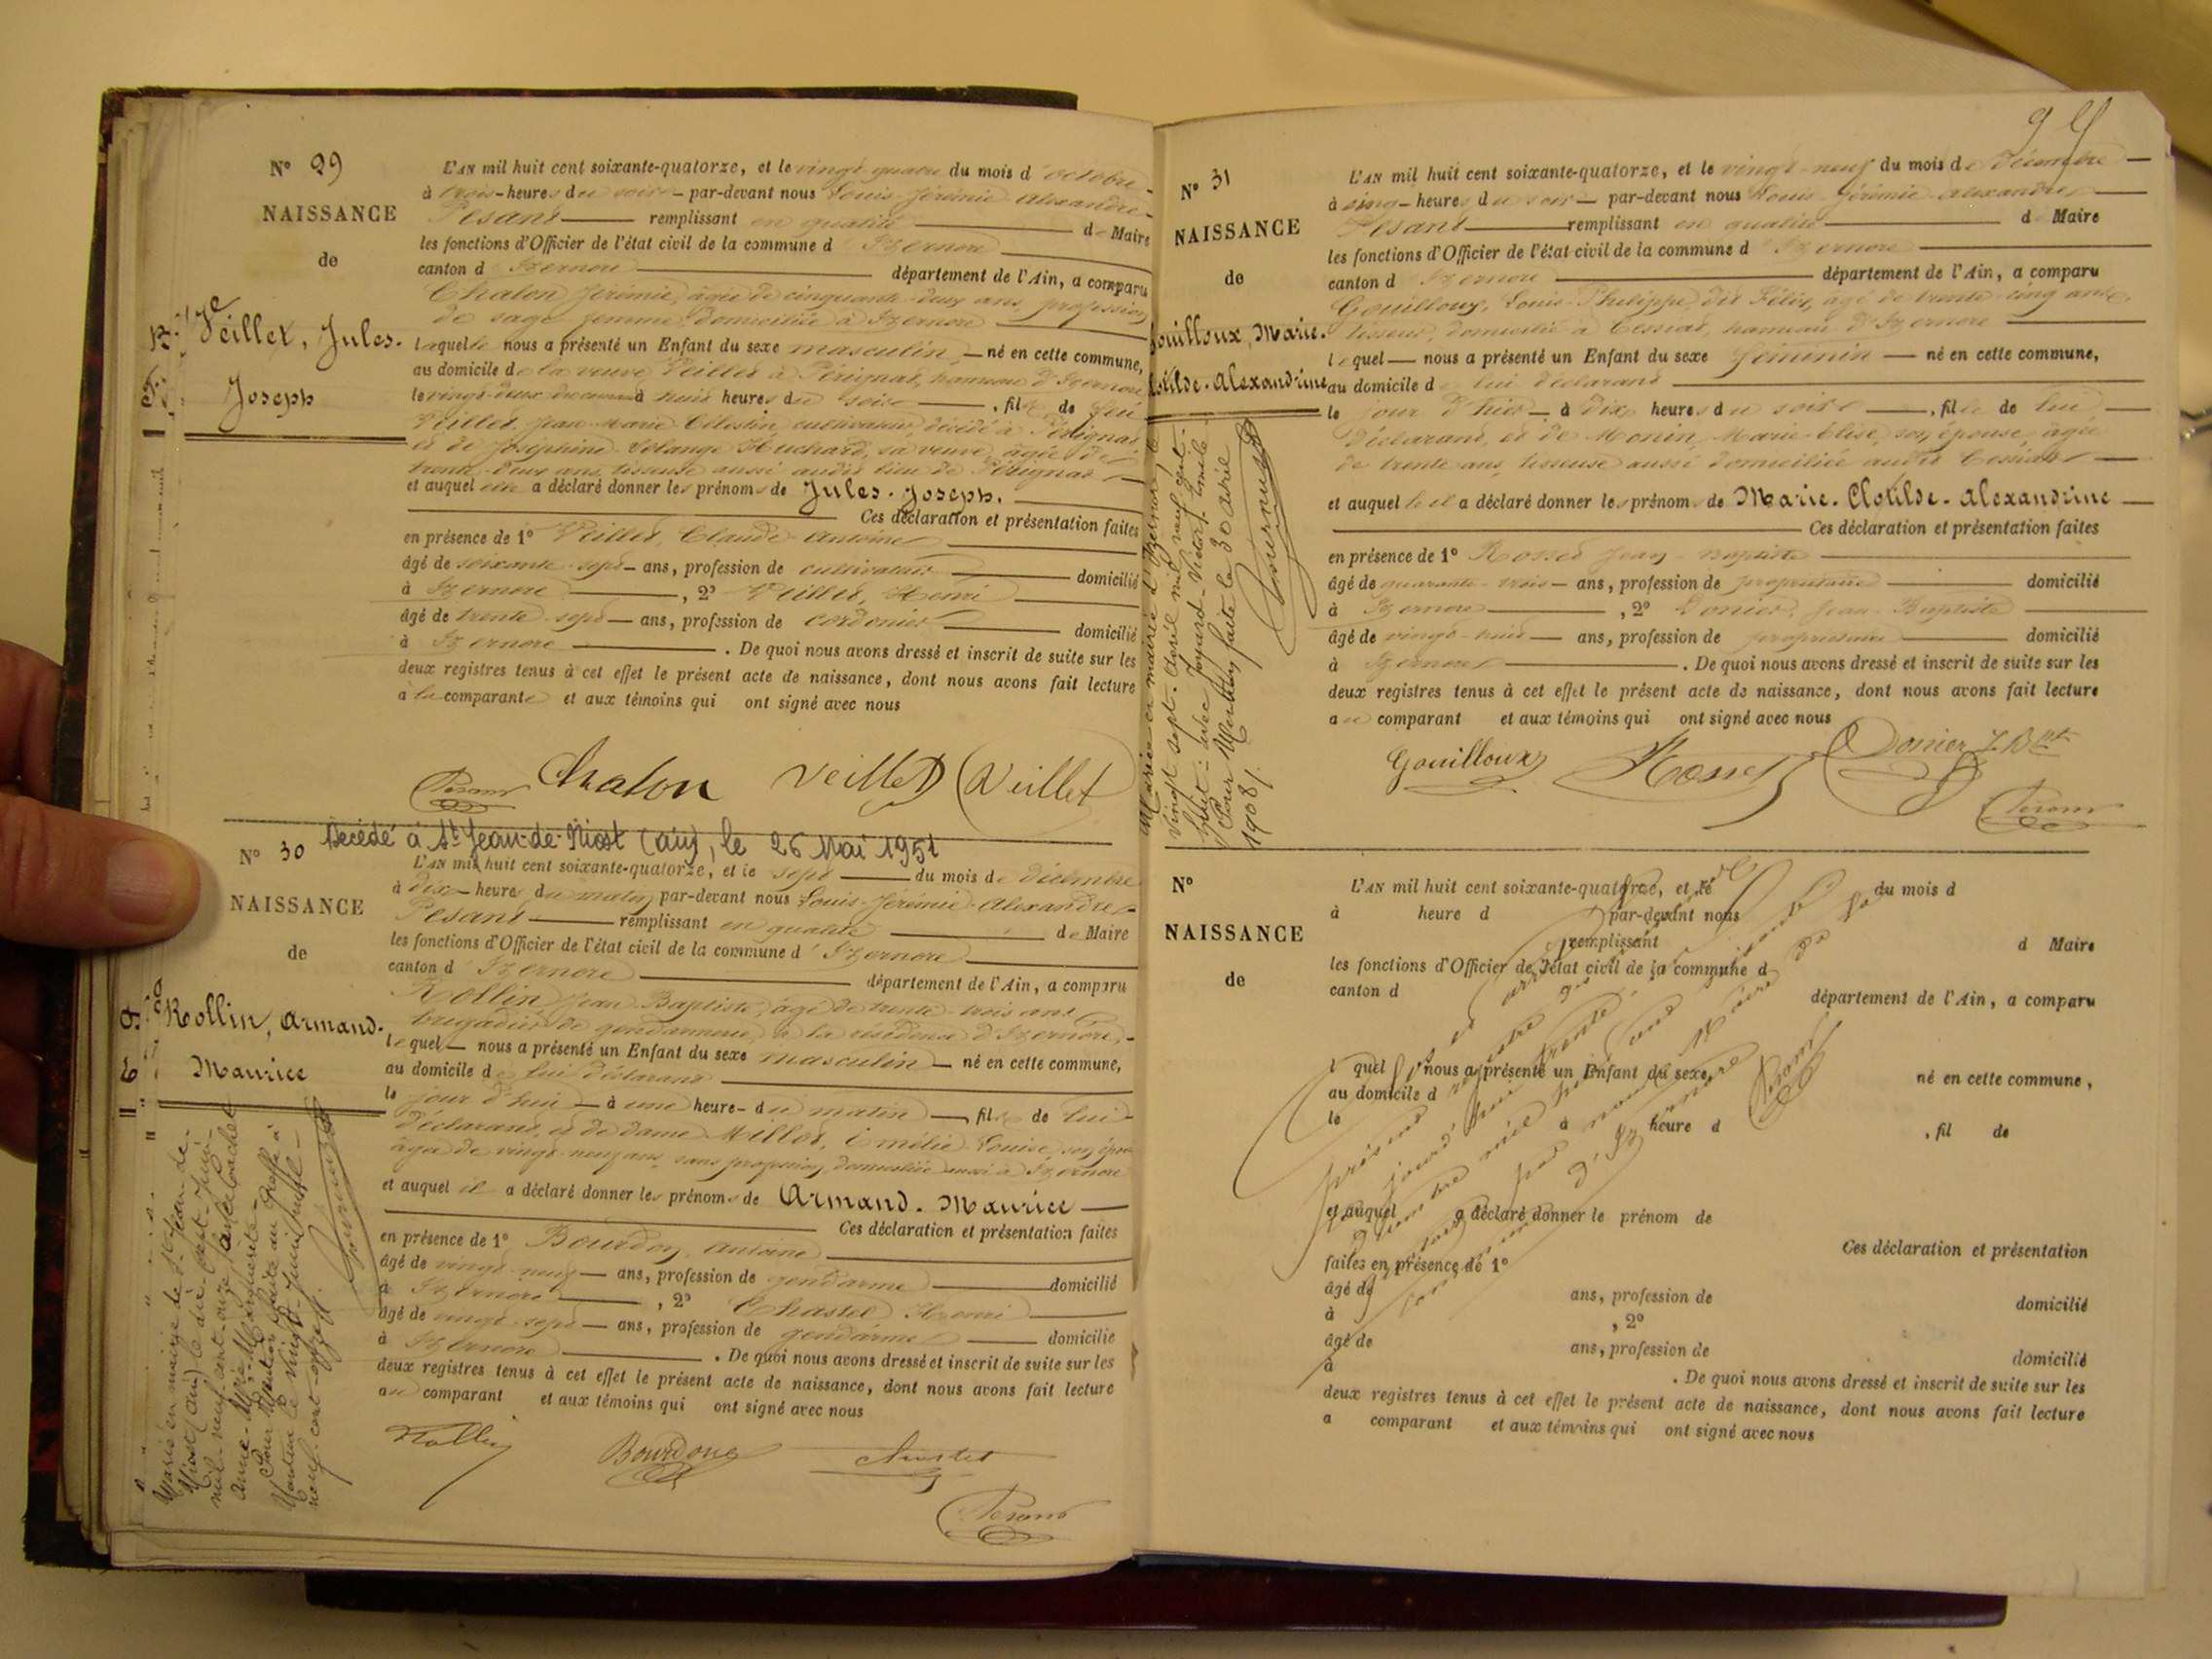 N° 29
NAISSANCE
de
Veillet, Jules.
Joseph
L'AN mil huit cent soixante-quatorze, et le vingt quatre du mois d'octobre
à trois heures du soir par-devant nous Louis Jérémie Alexandre
Pesant remplissant en qualité de Maire
les fonctions d'Officier de l'état civil de la commune d'Izernore
canton d'Izernore département de l'Ain, a comparu
Chalon Jérémie, âgée de cinquante-deux ans, profession
de sage femme domiciliée à Izernore
laquelle nous a présenté un Enfant du sexe masculin né en cette commune,
au domicile de la veuve Veillet à Pérignat, hameau d'Izernore
le vingt-deux du courant à huit heures du soir, fils de feu
Veillet Jean Marie Célestin, cultivateur, décédé à Pérignat
et de Joséphine Solange Huchard, sa veuve, âgée de
trente-deux ans, tisseuse aussi audit lieu de Pérignat
et auquel elle a déclaré donner les prénoms de Jules-Joseph.
Ces déclaration et présentation faites
en présence de 1° Veillet, Claude Antoine
âgé de soixante-sept ans, profession de cultivateur domicilié
à Izernore, 2° Veillet, Henri
âgé de trente-sept ans, profession de cordonier domicilié
à Izernore. De quoi nous avons dressé et inscrit de suite sur les
deux registres tenus à cet effet le présent acte de naissance, dont nous avons fait lecture
a la comparante et aux témoins qui ont signé avec nous
Pesant Chalon Veillet Veillet
Décédé à St Jean-de-Niost (ain), le 26 Mai 1951
N° 30
NAISSANCE
de
Rollin, Armand.
Maurice
L'AN mil huit cent soixante-quatorze, et le sept du mois de décembre
à dix heures du matin par-devant nous Louis-Jérémie-Alexandre
Pesant remplissant en qualité de Maire
les fonctions d'Officier de l'état civil de la commune d'Izernore
canton d'Izernore département de l'Ain, a comparu
Rollin Jean Baptiste, âgé de trente-trois ans
brigadier de gendarmerie, à la résidence d'Izernore,
lequel nous a présenté un Enfant du sexe masculin né en cette commune,
au domicile de lui déclarant
le jour d'hui à une heure du matin, fils de lui
déclarant, et de dame Millot, Emélie Louise, son épouse
âgée de vingt-neuf ans, sans profession, domiciliée aussi à Izernore
et auquel il a déclaré donner les prénoms de Armand-Maurice
Ces déclaration et présentation faites
en présence de 1° Bourdon, Antoine
âgé de vingt-neuf ans, profession de gendarme domicilié
à Izernore, 2° Chastel Henri
âgé de vingt-sept ans, profession de gendarme domicilié
à Izernore. De quoi nous avons dressé et inscrit de suite sur les
deux registres tenus à cet effet le présent acte de naissance, dont nous avons fait lecture
au comparant et aux témoins qui ont signé avec nous
Rollin Bourdon Chastel
Pesant
Marié en mairie de St Jean-de-
Niost (ain) le dix-sept-Juin-
mil-neuf-cent-onze,
Anne-Marie-Marguerite-
Pour Mention faite au Greffe à
Nantua le vingt-
neuf-cent-onze
N° 31
NAISSANCE
de
Gouilloux, Marie.
Clotilde-Alexandrine
L'AN mil huit cent soixante-quatorze, et le vingt-neuf du mois de décembre
à cinq heures du soir par-devant nous Louis Jérémie Alexandre
Pesant remplissant en qualité de Maire
les fonctions d'Officier de l'état civil de la commune d'Izernore
canton d'Izernore département de l'Ain, a comparu
Gouilloux, Louis Philippe dit Félix, âgé de trente-cinq ans,
tisseur, domicilié à Cessiat, hameau d'Izernore
lequel nous a présenté un Enfant du sexe féminin né en cette commune,
au domicile de lui déclarant
le jour d'hier à dix heures du soir, fille de lui
déclarant, et de Monin, Marie-Elise, son épouse, âgée
de trente ans, tisseuse aussi domiciliée audit Cessiat
et auquel il a déclaré donner les prénoms de Marie-Clotilde-Alexandrine
Ces déclaration et présentation faites
en présence de 1° Rosset Jean-Baptiste
âgé de quarante-trois ans, profession de propriétaire domicilié
à Izernore, 2° Donier, Jean-Baptiste
âgé de vingt-huit ans, profession de propriétaire domicilié
à Izernore. De quoi nous avons dressé et inscrit de suite sur les
deux registres tenus à cet effet le présent acte de naissance, dont nous avons fait lecture
au comparant et aux témoins qui ont signé avec nous
Gouilloux Rosset Donier J. Bte
Pesant
Mariée en mairie d'Izernore le
vingt-sept-Avril mil neuf cent
huit : avec Joyard-Victor-
Pour Mention faite le 30 avril
1908
N°
NAISSANCE
de
L'AN mil huit cent soixante-quatorze, et le du mois d
à heure d par-devant nous
remplissant d Maire
les fonctions d'Officier de l'état civil de la commune d
canton d département de l'Ain, a comparu
l quel nous a présenté un Enfant du sexe né en cette commune,
au domicile d
le à heure d , fil de
et auquel a déclaré donner le prénom de
Ces déclaration et présentation
faites en présence de 1°
âgé de ans, profession de domicilié
à , 2°
âgé de ans, profession de domicilié
à . De quoi nous avons dressé et inscrit de suite sur les
deux registres tenus à cet effet le présent acte de naissance, dont nous avons fait lecture
a comparant et aux témoins qui ont signé avec nous
Pesant